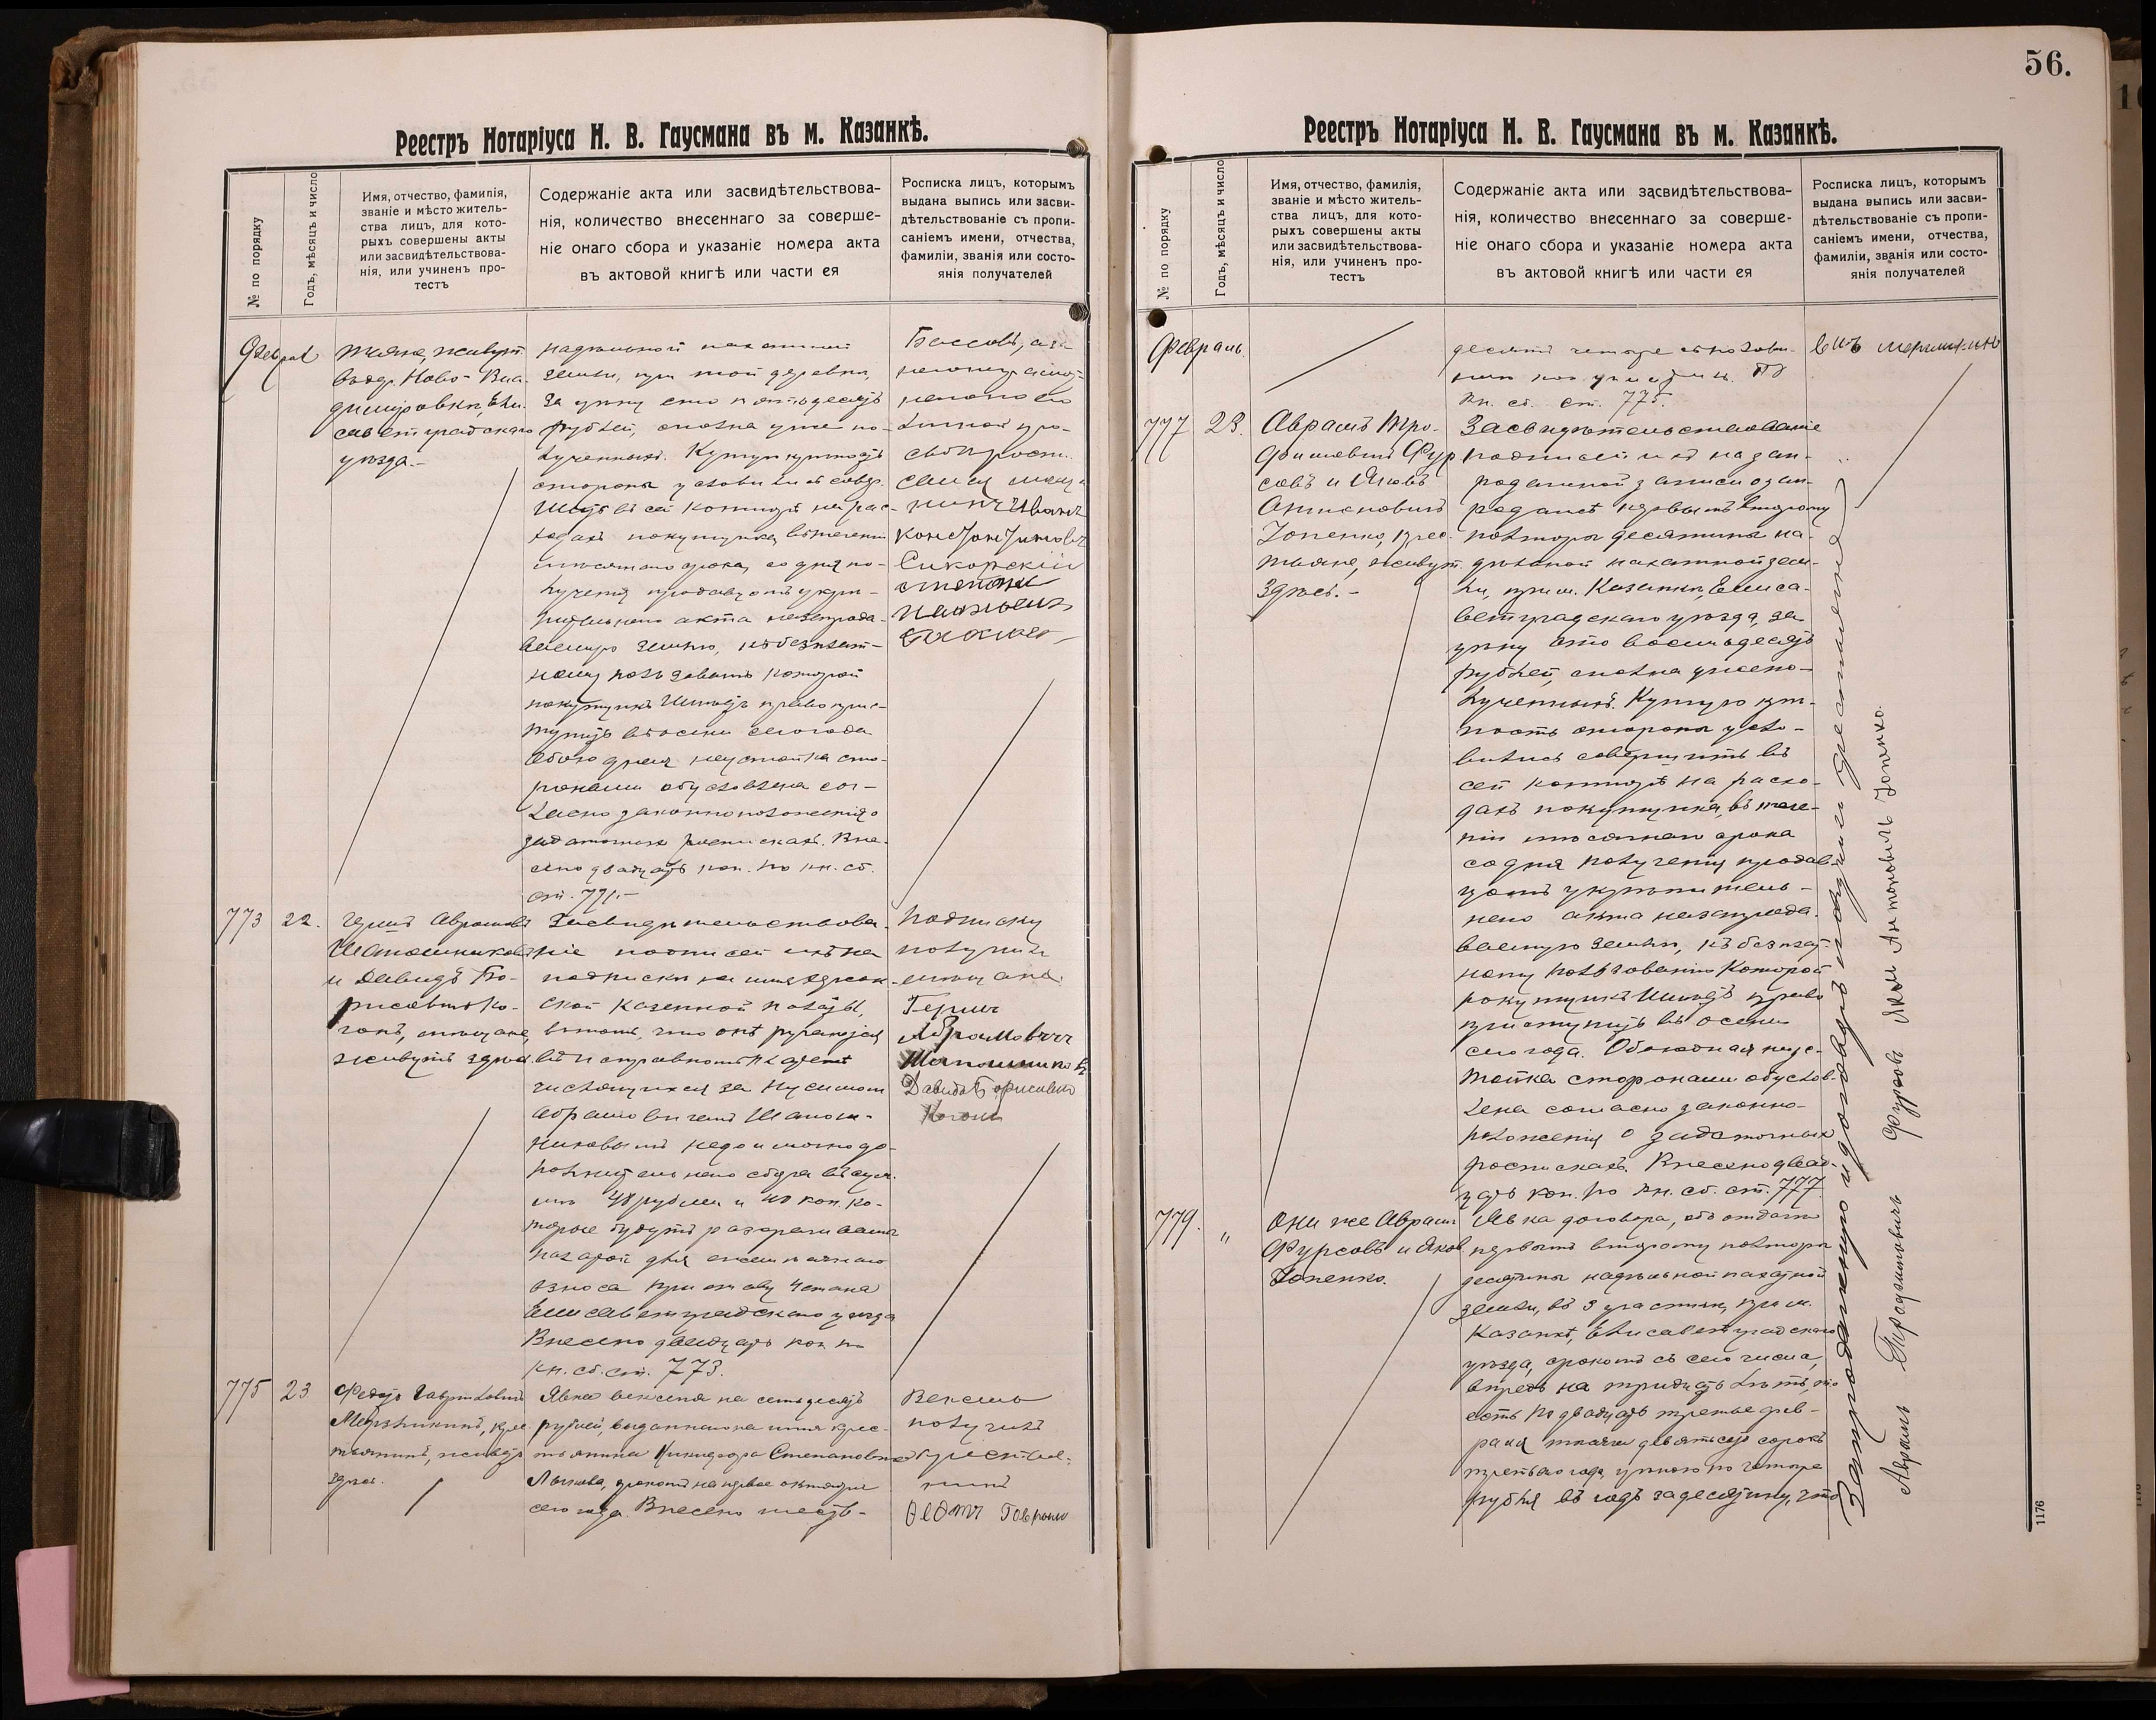 56.
Реестръ Нотаріуса Н. В. Гаусмана въ м. Казанкѣ.
№ по порядку
Годъ, мѣсяцъ и число
Имя, отчество, фамилія,
званіе и мѣсто житель-
ства лицъ, для кото-
рыхъ совершены акты
или засвидѣтельствова-
нія, или учиненъ про-
тестъ
Содержаніе акта или засвидѣтельствова-
нія, количество внесеннаго за соверше-
ніе онаго сбора и указаніе номера акта
въ актовой книгѣ или части ея
Росписка лицъ, которымъ
выдана выпись или засви-
дѣтельствованіе съ пропи-
саніемъ имени, отчества,
фамиліи, званія или состо-
янія получателей
тьяне, живут.
въ др. Ново-Вла-
димировкѣ, Ели-
саветградскаго
уѣзда.-
надѣльной пахатной
земли, при той деревни,
за цѣну сто пятьдесятъ
рублей, сполна уже по-
лученныхъ. Купчую крѣпость
стороны условились совер-
шить въ сей конторѣ на рас-
ходахъ покупщика, въ теченіи
мѣсячнаго срока, со дня по-
лученія продавцомъ укрѣ-
пительнаго акта на запрода-
ваемую землю, къ безплат-
ному пользованію которой
покупщикъ имѣетъ право прис-
тупить въ осени сего года
Обоюдная неустойка сто-
ронами обусловлена сог-
ласно законоположенія о
задаточныхъ роспискахъ. Вне-
сено двадцать коп. по кн. сб.
ст. 771.-
Басовъ, а за
неграмот-
наго по его
личной прo-
сьбѣ росп.
Иванъ
Константиновъ
Сикорскій
773 22.
Шапошниковъ
и Давидъ Бо-
рисовичъ Ко-
ганъ, мѣщане,
живутъ здѣсь
Засвидѣтельствова-
ніе подписей ихъ на
подписки на имя Херсон-
ской Казенной Палаты,
въ томъ, что они ручаются
въ исправномъ платежѣ
числящихся за Нусимомъ
Абрамовичемъ Шапош-
никовымъ недоимокъ до-
полнительнаго сбора въ сум-
мѣ 48 рублей и 40 коп. ко-
торые будутъ разсрочены
палатой для ежемѣсячнаго
взноса приставу 4 стана
Елисаветградскаго уѣзда
Внесено двадцать коп. по
кн. сб. ст. 773.
Подписку
получили
мѣщане
Абрамовичъ
Шапошниковъ
Давидъ Борисовичъ
Коганъ
775 23
Федотъ Гавриловичъ
Мерзликинъ, крес-
тьянинъ, живетъ
здѣсь.
Явка векселя на семьдесятъ
рублей, выданнаго на имя крес-
тьянина Никифора Степановича
Лыкова, срокомъ на первое октября
сего года. Внесено шесть-
Вексель
получилъ
крестья-
нинъ
Ѳедотъ Гаврило
Реестръ Нотаріуса Н. В. Гаусмана въ м. Казанкѣ.
№ по порядку
Годъ, мѣсяцъ и число
Имя, отчество, фамилія,
званіе и мѣсто житель-
ства лицъ, для кото-
рыхъ совершены акты
или засвидѣтельствова-
нія, или учиненъ про-
тестъ
Содержаніе акта или засвидѣтельствова-
нія, количество внесеннаго за соверше-
ніе онаго сбора и указаніе номера акта
въ актовой книгѣ или части ея
Росписка лицъ, которымъ
выдана выпись или засви-
дѣтельствованіе съ пропи-
саніемъ имени, отчества,
фамиліи, званія или состо-
янія получателей
Февраль
десять четыре съ полови-
кн. сб. ст. 775.
вичъ Мерзликинъ
777 23.
Аврамъ Тро-
фимовичъ Фур-
совъ и Яковъ
Антоновичъ
Зопенко, крес-
тьяне, живут.
здѣсь.-
Засвидѣтельствованіе
подписей ихъ на зап-
родажной записи о зап-
родажѣ первымъ второму
полторы десятины на-
дѣльной пахатной зем-
ли, при м. Казанкѣ, Елиса-
ветградскаго уѣзда, за
цѣну сто восемьдесятъ
рублей, сполна уже по-
лученныхъ. Купчую крѣ-
пость стороны усло-
вились совершить въ
сей конторѣ на расхо-
дахъ покупщика, въ тече-
ніи мѣсячнаго срока
со дня полученія продав-
цомъ укрѣпитель-
наго акта на запрода-
ваемую землю, къ безплат-
ному пользованію которой
покупщикъ имѣетъ право
приступить въ осени
сего года. Обоюдная неус-
тойка сторонами обуслов-
лена согласно законно-
положенія о задаточныхъ
роспискахъ. Внесено двад-
цать коп. по кн. сб. ст. 777
779. "
Они же Аврамъ
Фурсовъ и Яков
Зопенко.
Явка договора, объ отдачѣ
первымъ второму полторы
десятины надѣльной пахатной
земли, въ 3 участкѣ, при м.
Казанкѣ, Елисаветградскаго
уѣзда, срокомъ съ сего числа,
впредь на тридцать лѣтъ, то
есть по двадцать третье фев-
раля тысяча девятьсотъ сорокъ
третьяго года, цѣною по четыре
рубля въ годъ за десятину, что
Запродажную и договоръ получили крестьяне
Аврамъ Трофимовичъ Фурсовъ Яковъ Антоновичъ Зопенко.
1176